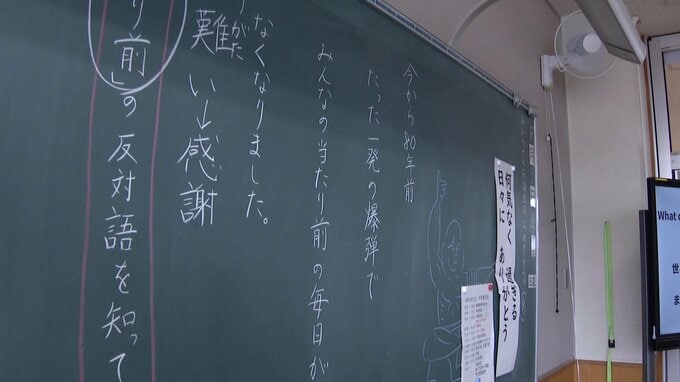 今から80年前
たった一発の爆弾で
みんなの当たり前の毎日が
なくなりました。
難い→感謝
がた
り前」の反対語を知って
何気なく過ぎる
日々に ありがとう
What
世
ま